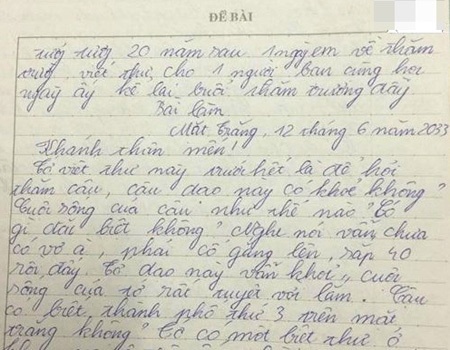 ĐỀ BÀI
tưởng tượng 20 năm sau 1 ngày em về thăm
trường, viết thư cho 1 người bạn cùng học
ngày ấy kể lại buổi thăm trường đấy
Bài làm
Mặt Trăng, 12 tháng 6 năm 2033
Khánh thân mến!
Tớ viết thư này trước hết là để hỏi
thăm cậu, cậu dạo này có khoẻ không?
Cuộc sống của cậu như thế nào? Có
gì đặc biệt không? Nghe nói vẫn chưa
có vợ à, phải cố gắng lên, sắp 40
rồi đấy. Tớ dạo này vẫn khoẻ, cuộc
sống của tớ rất tuyệt vời lắm. Cậu
có biết thành phố thứ 3 trên mặt
trăng không? Tớ có một biệt thự ở